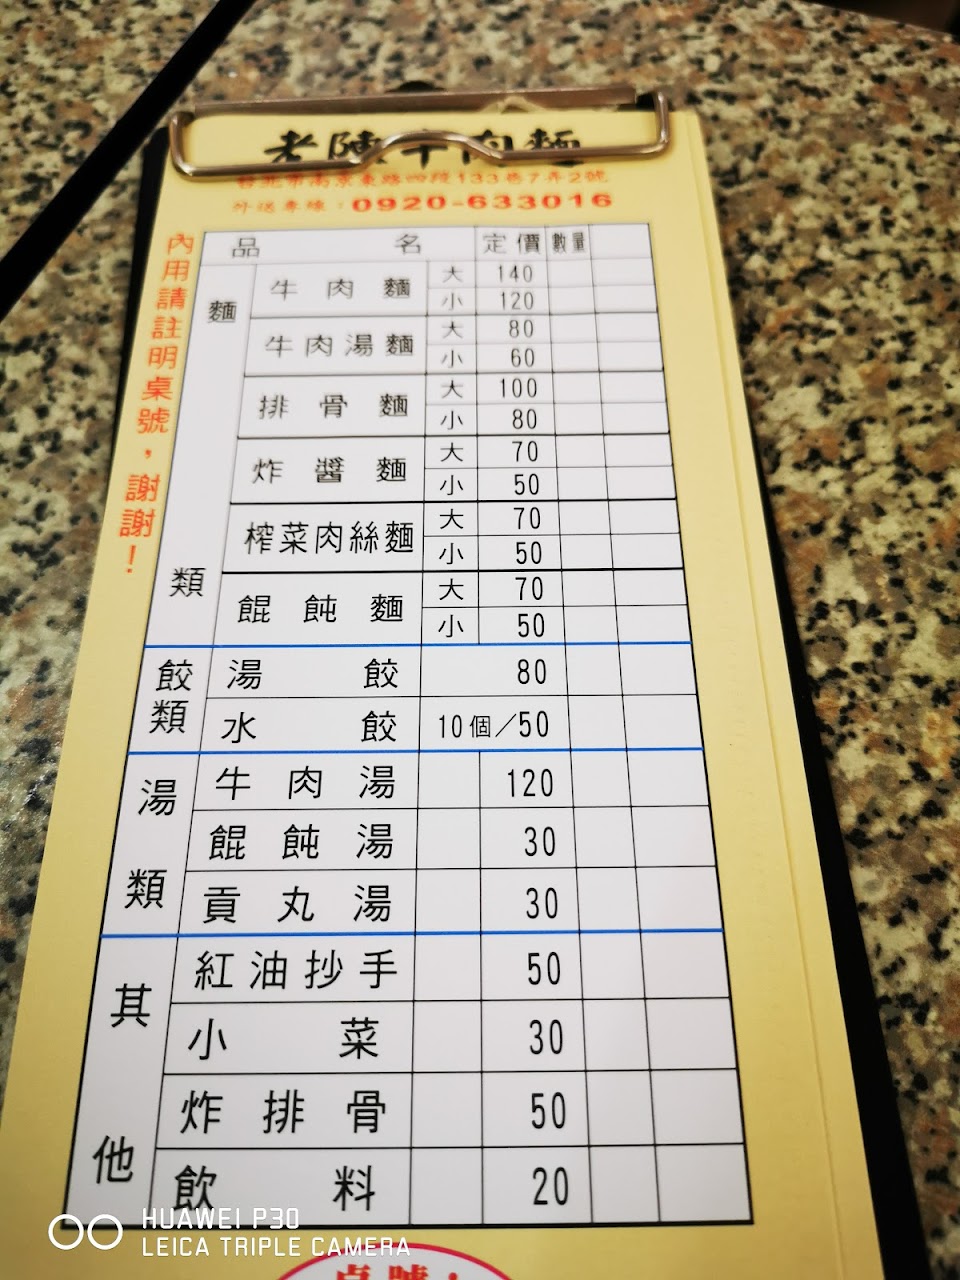 老陳牛肉麵
台北市南京東路四段133巷7弄2號
外送專線：0920-633016
內用請註明桌號，謝謝！
品名 定價 數量
麵類
牛肉麵 大 140
小 120
牛肉湯麵 大 80
小 60
排骨麵 大 100
小 80
炸醬麵 大 70
小 50
榨菜肉絲麵 大 70
小 50
餛飩麵 大 70
小 50
餃類
湯餃 80
水餃 10個／50
湯類
牛肉湯 120
餛飩湯 30
貢丸湯 30
其他
紅油抄手 50
小菜 30
炸排骨 50
飲料 20
桌號：
HUAWEI P30
LEICA TRIPLE CAMERA